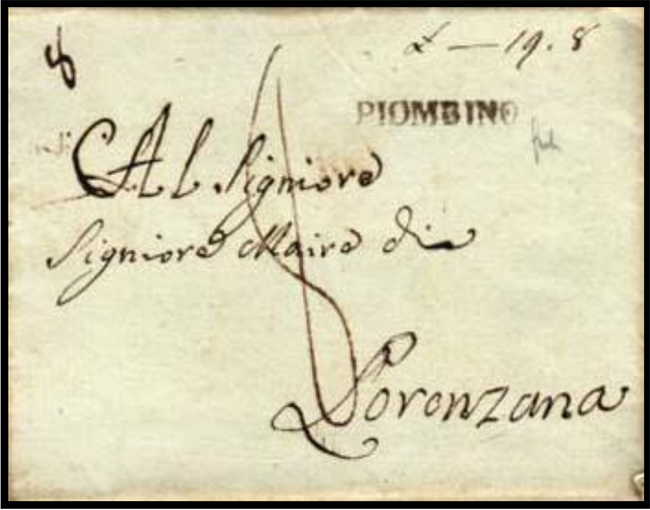 8
£ — 19. 8
PIOMBINO
Al Signiore
Signiore Maire di
Lorenzana